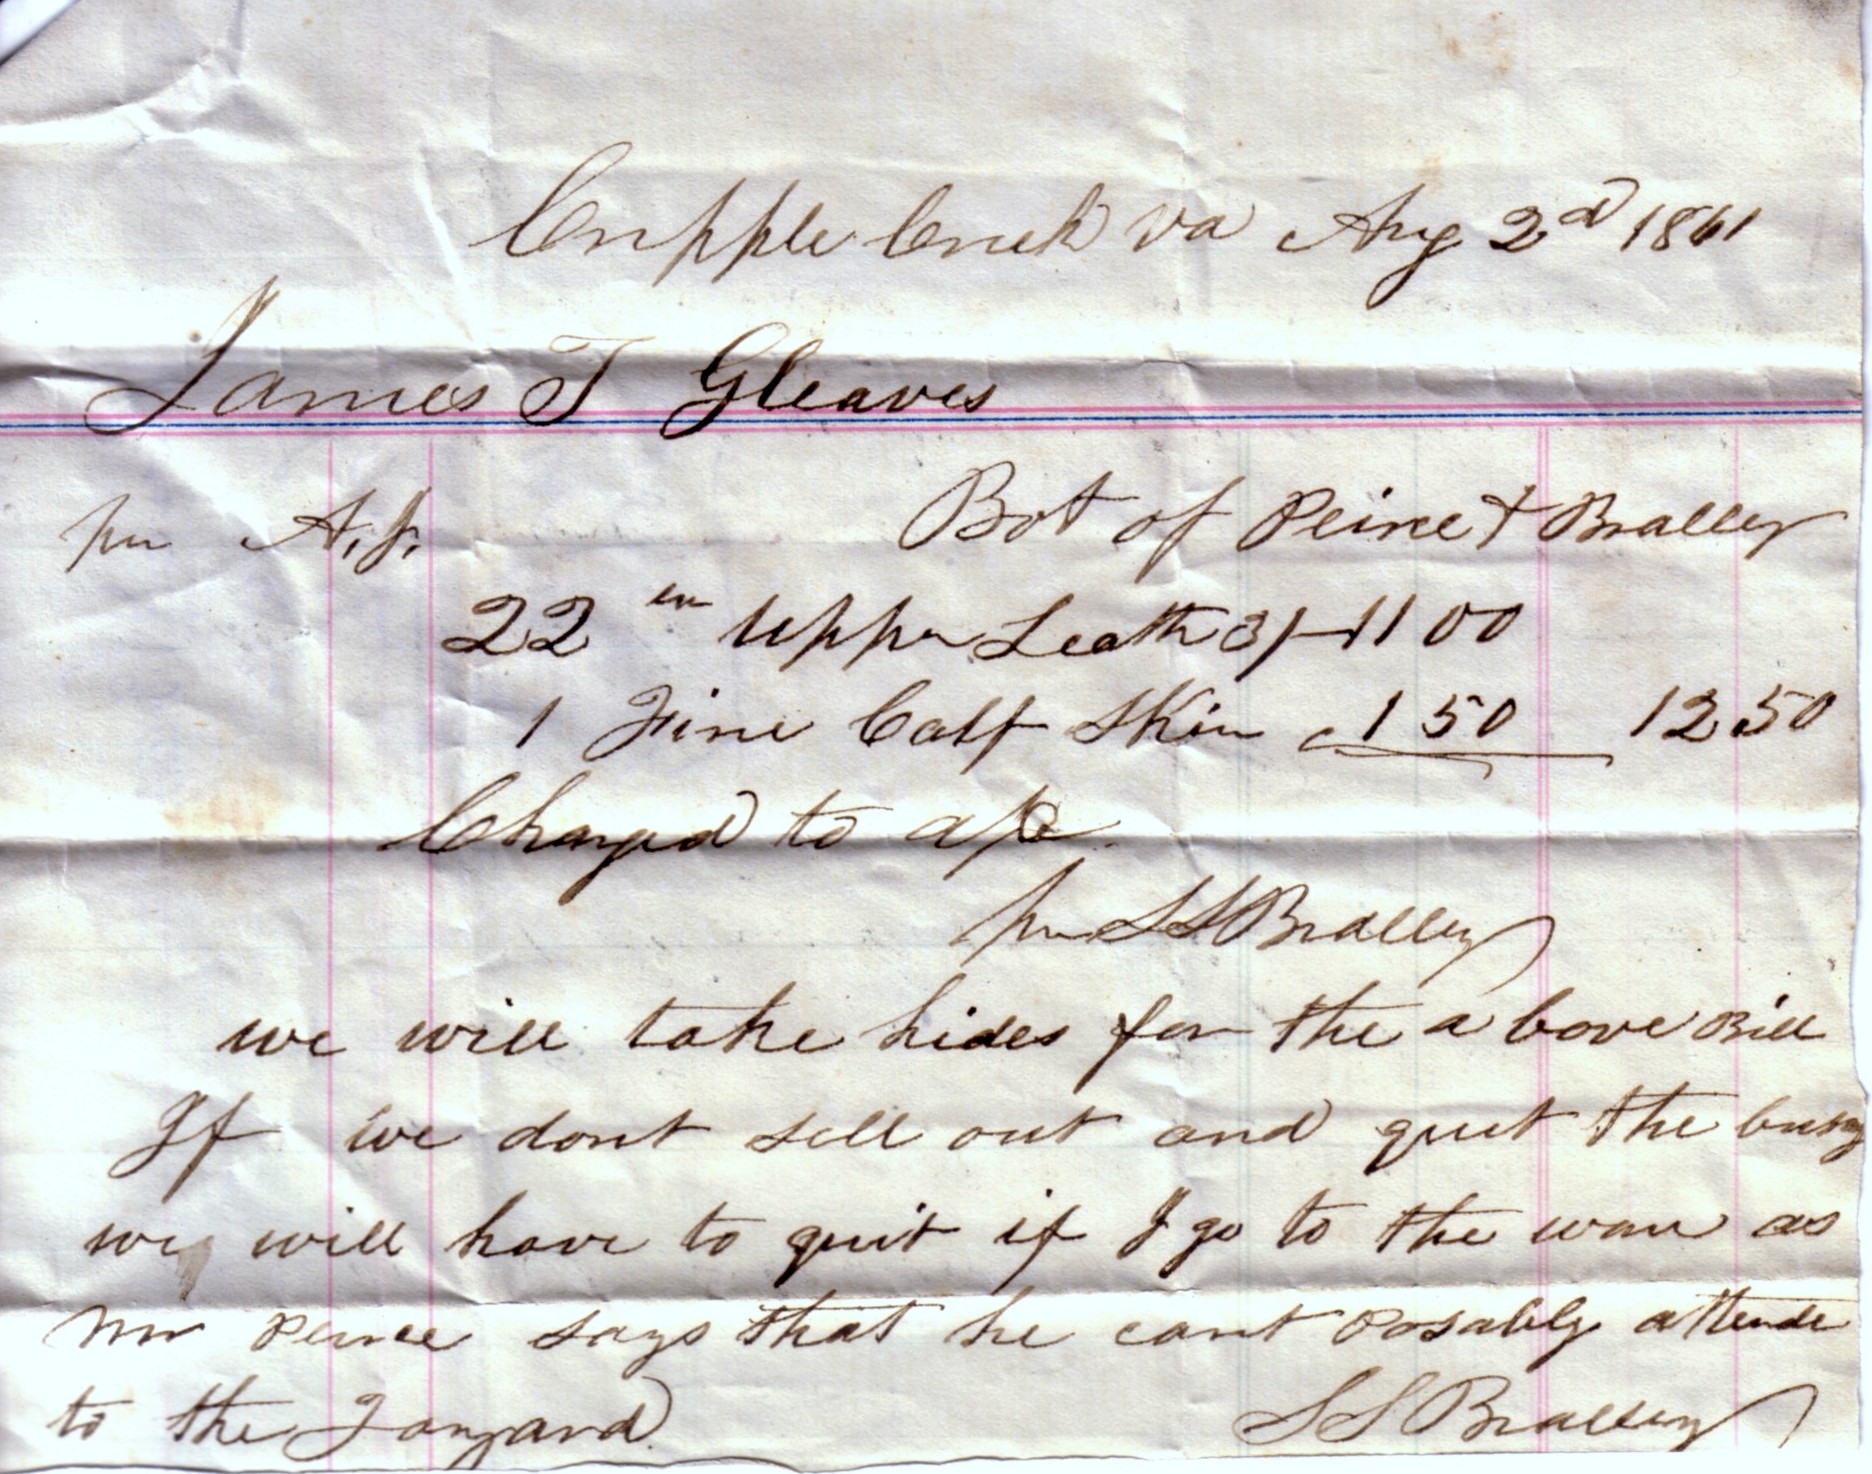 Cripple Creek Va Aug 2d 1861
James T Gleaves
per A. J. Bot of Peirce & Bralley
22 Upper Leath 3/ 11 00
1 Fine Calf Skin 1 50 12 50
Charged to a/c
per S S Bralley
we will take hides for the above Bill
If we dont sell out and quit the
we will have to quit if I go to the war as
Mr Peirce says that he cant Posably attende
to the Tanyard. S S Bralley